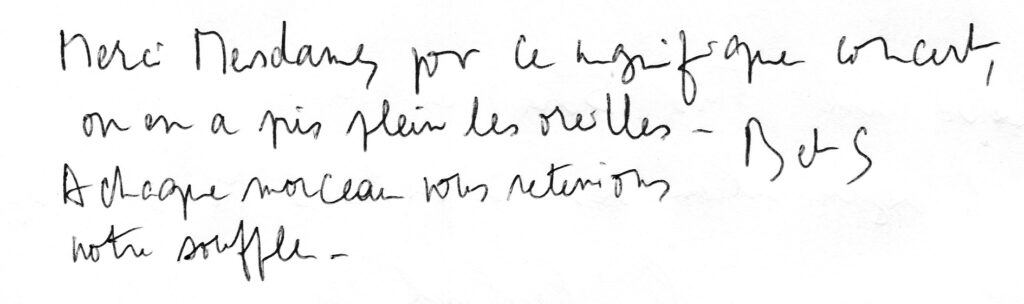 Merci Mesdames, pour ce magnifique concert,
on en a pris plein les oreilles -
B et S
A chaque morceau nous retenions
notre souffle -